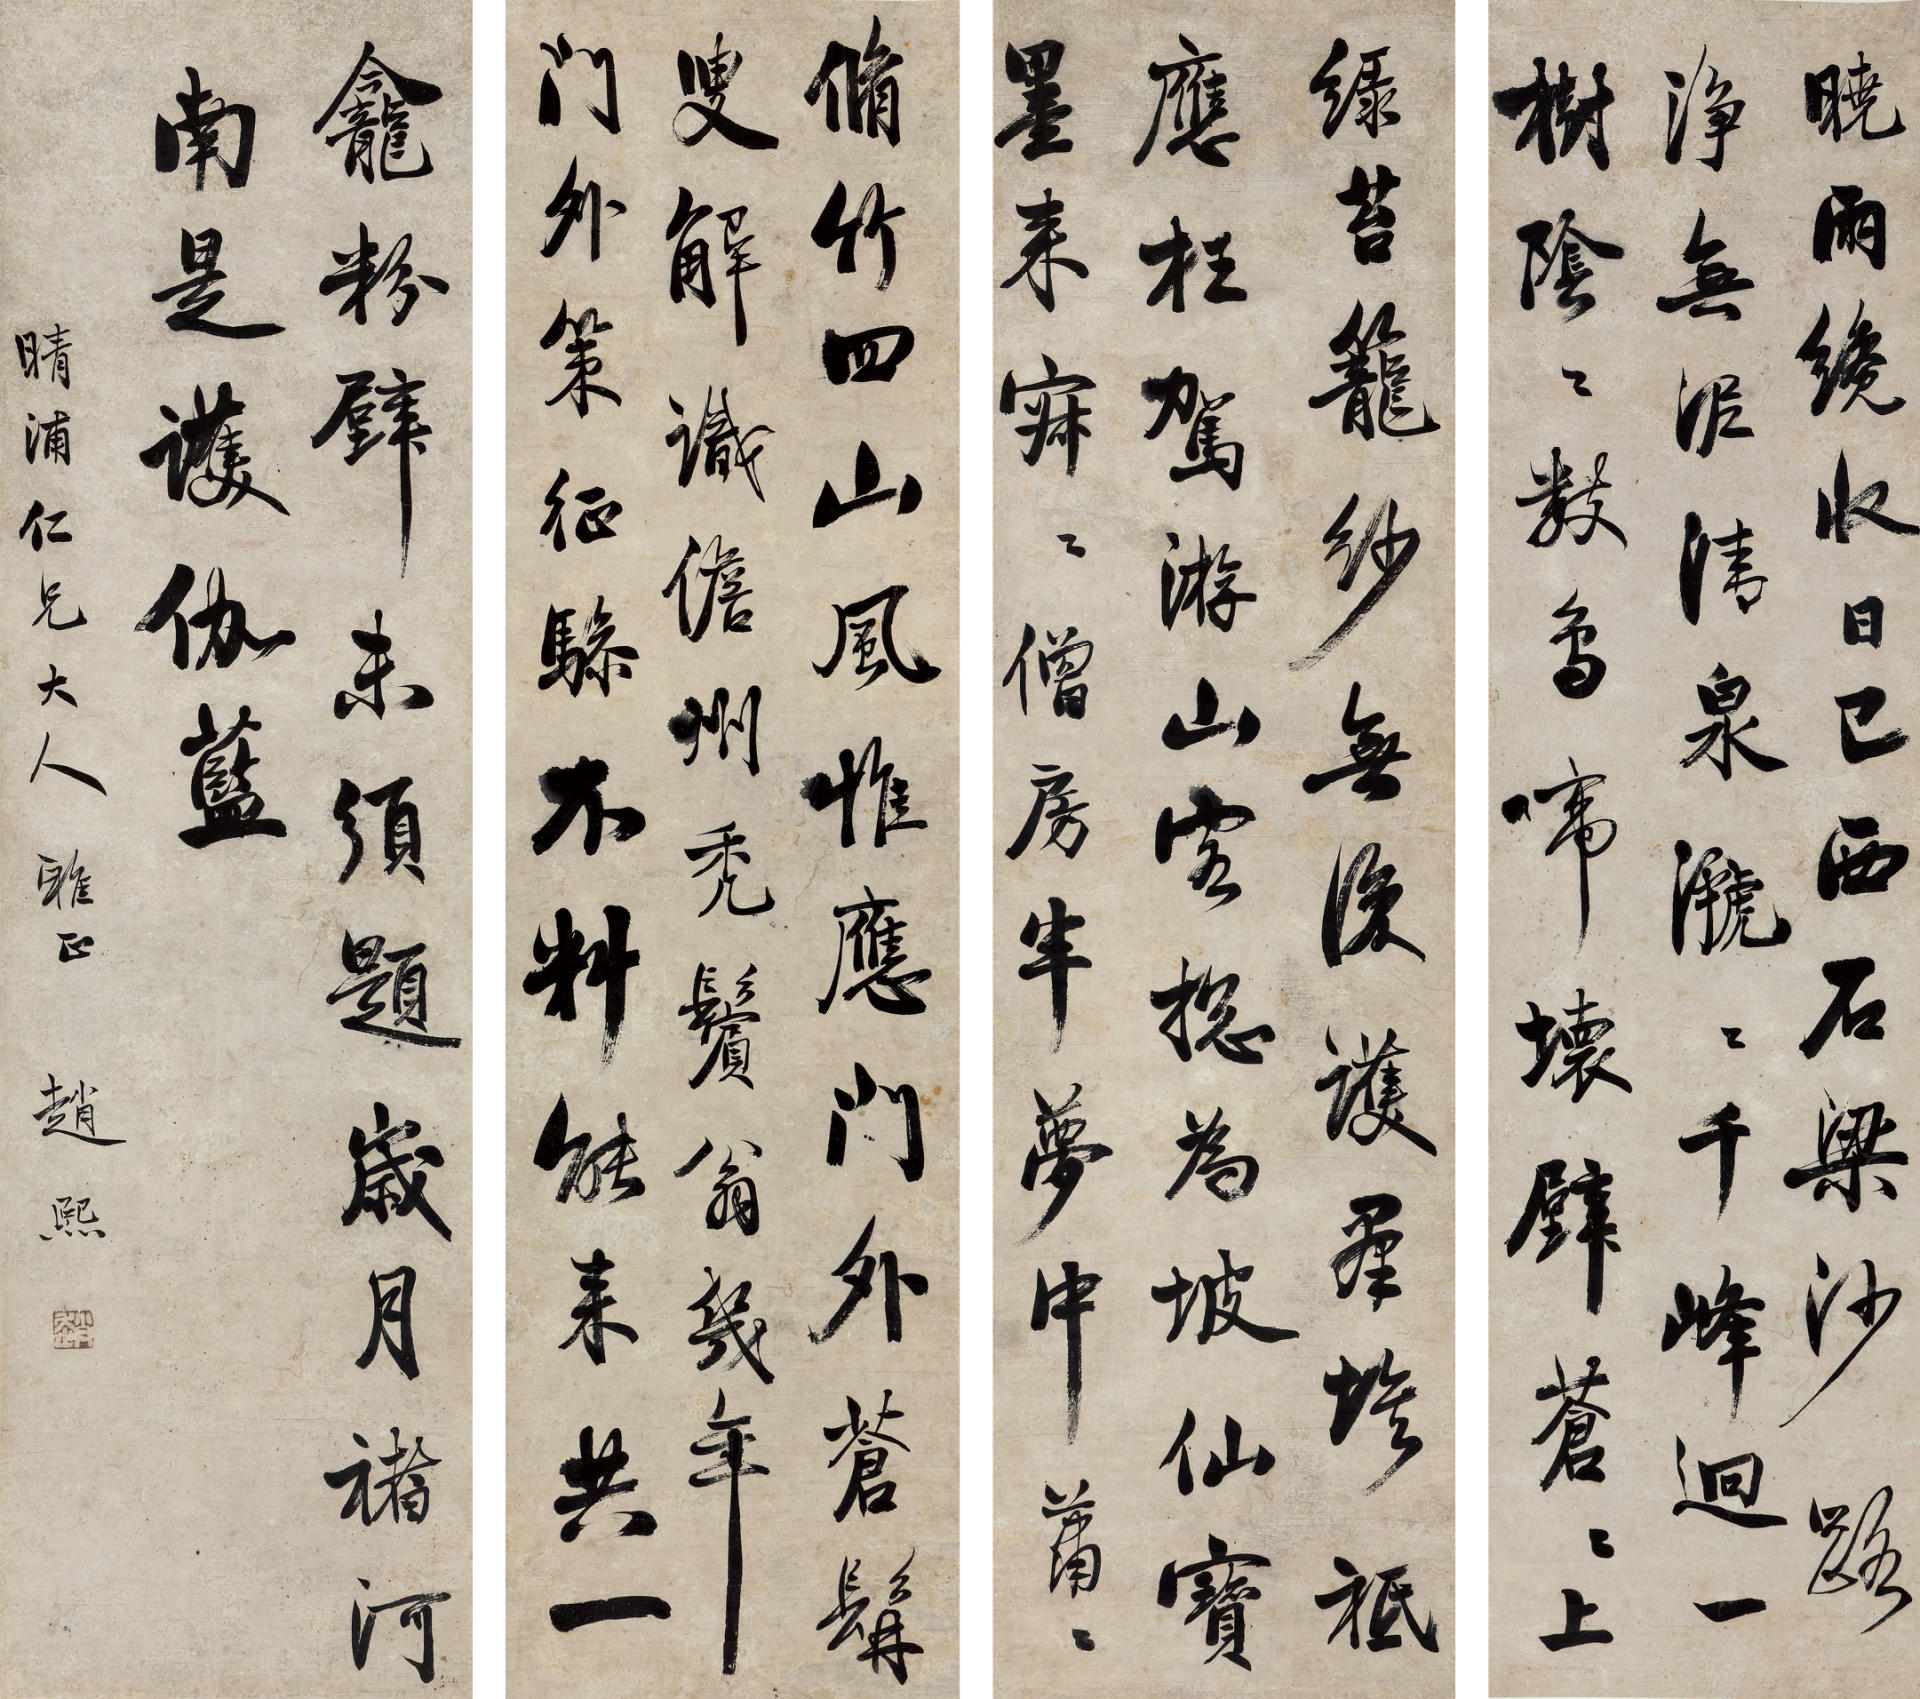 曉雨纔收日已西石梁沙路
淨無泥清泉㶁〻千峰迴一
樹陰〻數鳥啼壞壁蒼〻上
綠苔籠紗無復護羣埃祇
應枉駕游山客揔為坡仙寶
墨来寐〻僧房半夢中蕭〻
脩竹四山風惟應門外蒼髯
叟解識儋州禿鬢翁幾年
門外策征驂不料能来共一
龕粉壁未須題歲月褚河
南是護伽藍
晴浦仁兄大人雅正 趙熙